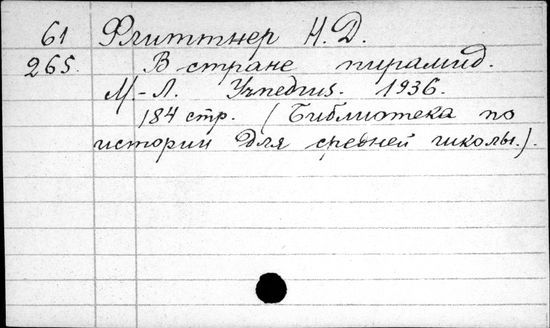 61 Флиттнер Н. Д.
265. В стране пирамид.
М.-Л. Учпедгиз. 1936.
184 стр. (Библиотека по
истории для средней школы.).